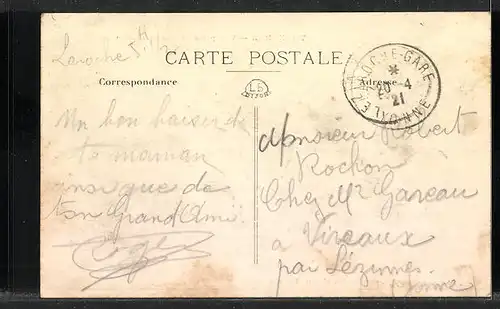 Laroche
CARTE POSTALE
Correspondance
Adresse
LAROCHE-GARE
20 - 4
21
YONNE
Un bon baiser de
ta maman
insi que de
ton Grand Ami
Monsieur Robert
Rochon
Chez Mr Gareau
a Vireaux
par Lézinnes
Yonne